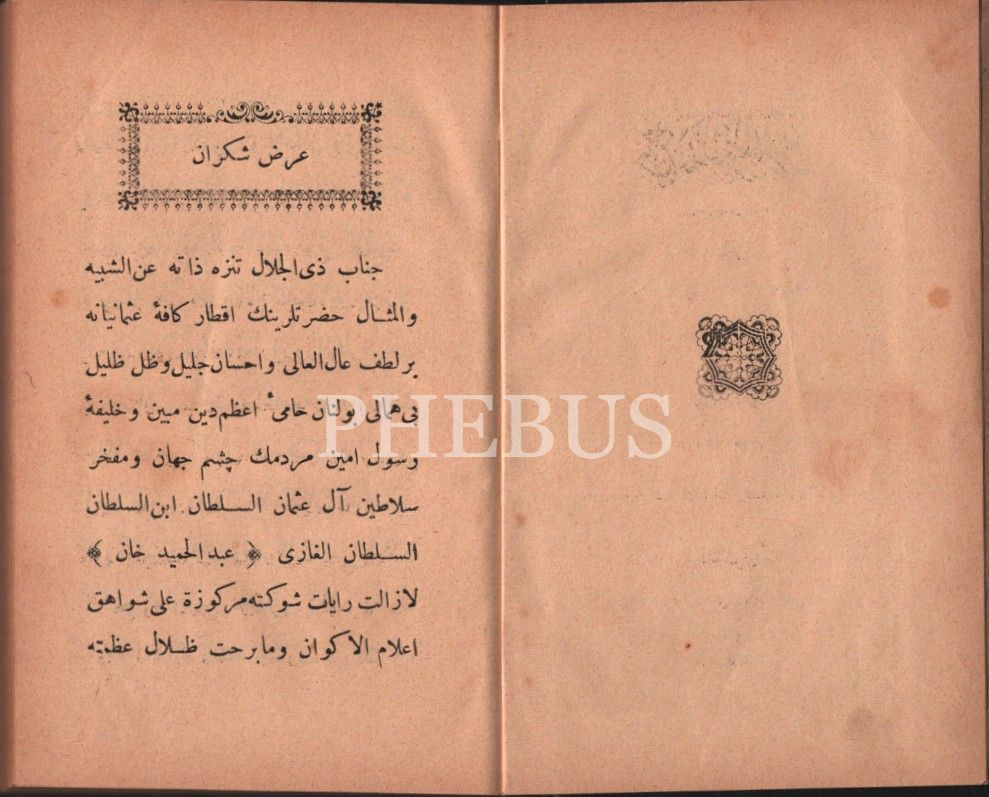 عرض شكران
جناب ذى الجلال تنزه ذاته عن الشبيه
والمثال حضرتلرينك اقطار كافهٔ عثمانيانه
بر لطف عال العالى واحسان جليل وظل ظليل
بى همالى بولنان حامىٔ اعظم دين مبين وخليفهٔ
رسول امين مردمك چشم جهان ومفخر
سلاطين آل عثمان السلطان ابن السلطان
السلطان الغازى ﴿ عبد الحميد خان ﴾
لازالت رايات شوكته مركوزة على شواهق
اعلام الاكوان ومابرحت ظلال عظمته
PHEBUS